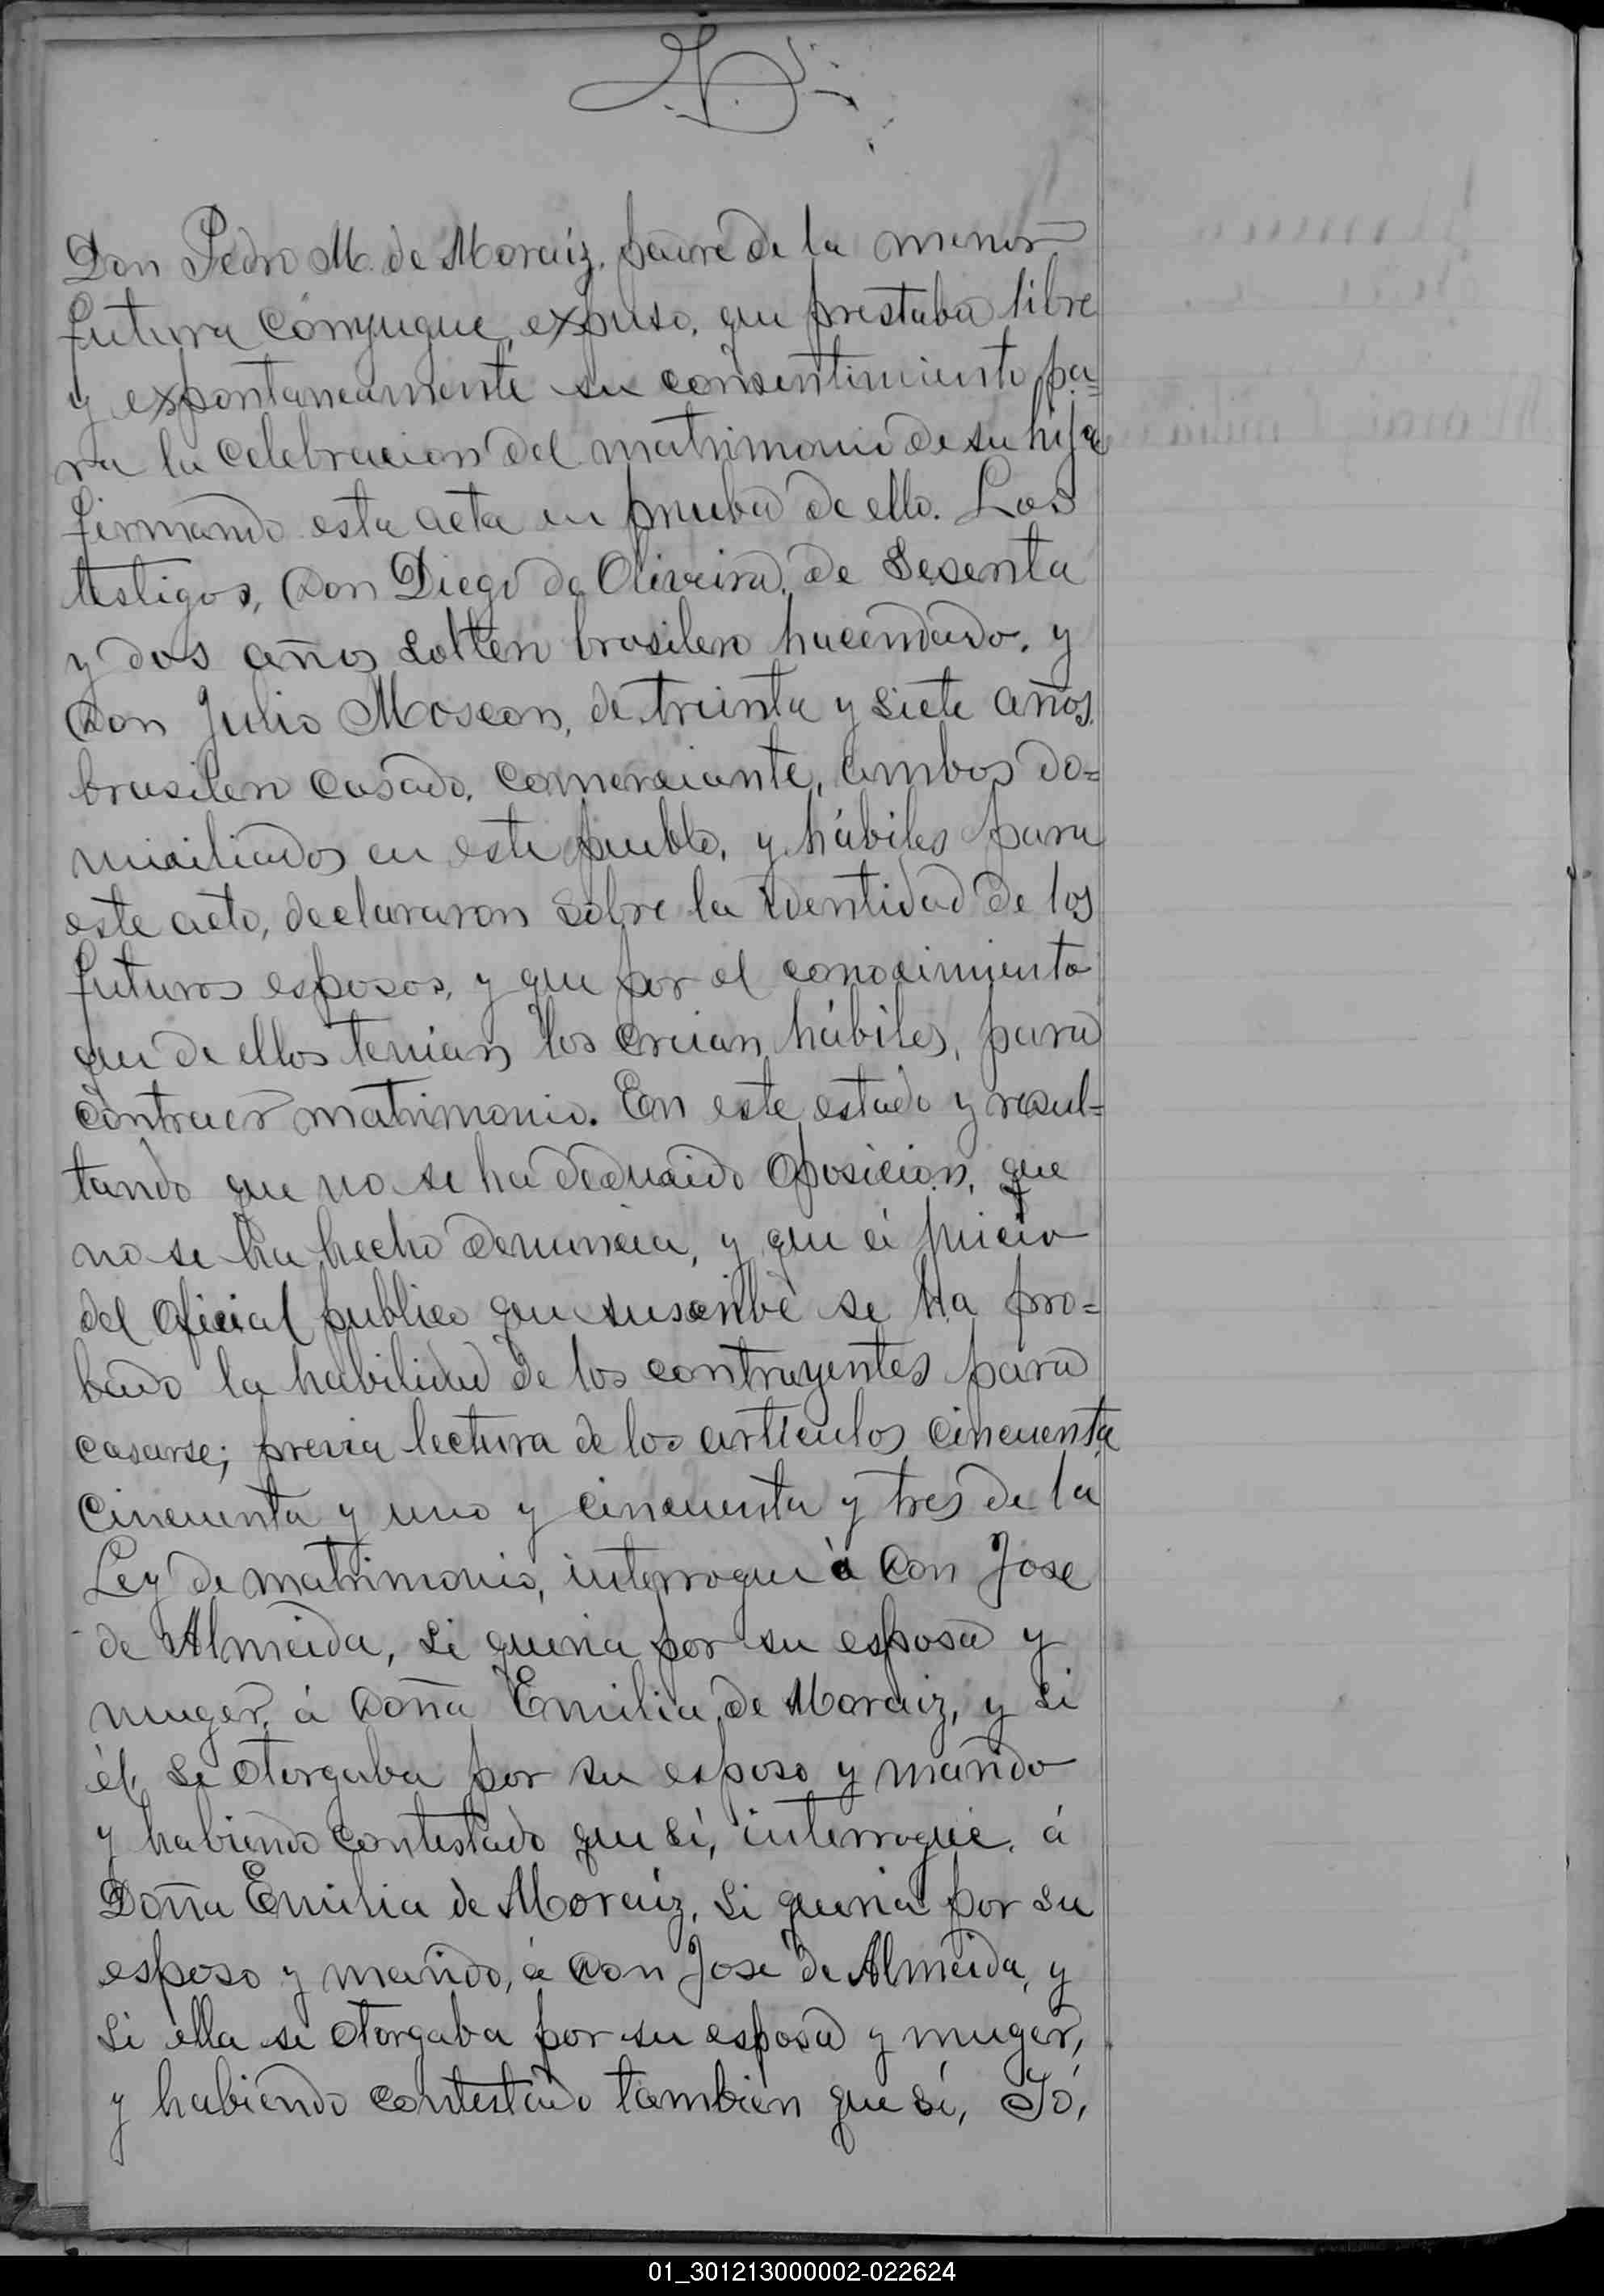 Don Pedro M. de Moraiz, padre de la menor
futura conyugue, expuso, que prestaba libre
y expontaneamente su consentimiento pa=
ra la celebracion del matrimonio de su hija
firmando esta acta en prueba de ello. Los
testigos, Don Diego de Oliveira, de Sesenta
y dos años soltero brasilero hacendado, y
Don Julio Moscon, de treinta y siete años,
brasilero casado, comerciante, ambos do=
miciliados en este pueblo, y hábiles para
este acto, declararon sobre la identidad de los
futuros esposos, y que por el conocimiento
que de ellos tenian los creian hábiles, para
contraer matrimonio. En este estado y resul=
tando que no se ha deducido oposicion, que
no se ha hecho denuncia, y que á juicio
del oficial publico que suscribe se ha pro=
bado la habilidad de los contrayentes para
casarse; previa lectura de los articulos cincuenta
cincuenta y uno y cincuenta y tres de la
Ley de matrimonio, interrogue á Don Jose
de Almeida, si queria por su esposa y
muger, á Doña Emilia de Moraiz, y si
él se otorgaba por su esposo y marido
y habiendo contestado que sí, interrogué á
Doña Emilia de Moraiz, si queria por su
esposo y marido, á Don Jose de Almeida, y
si ella se otorgaba por su esposa y muger,
y habiendo contestado tambien que sí, Yó,
01_301213000002-022624